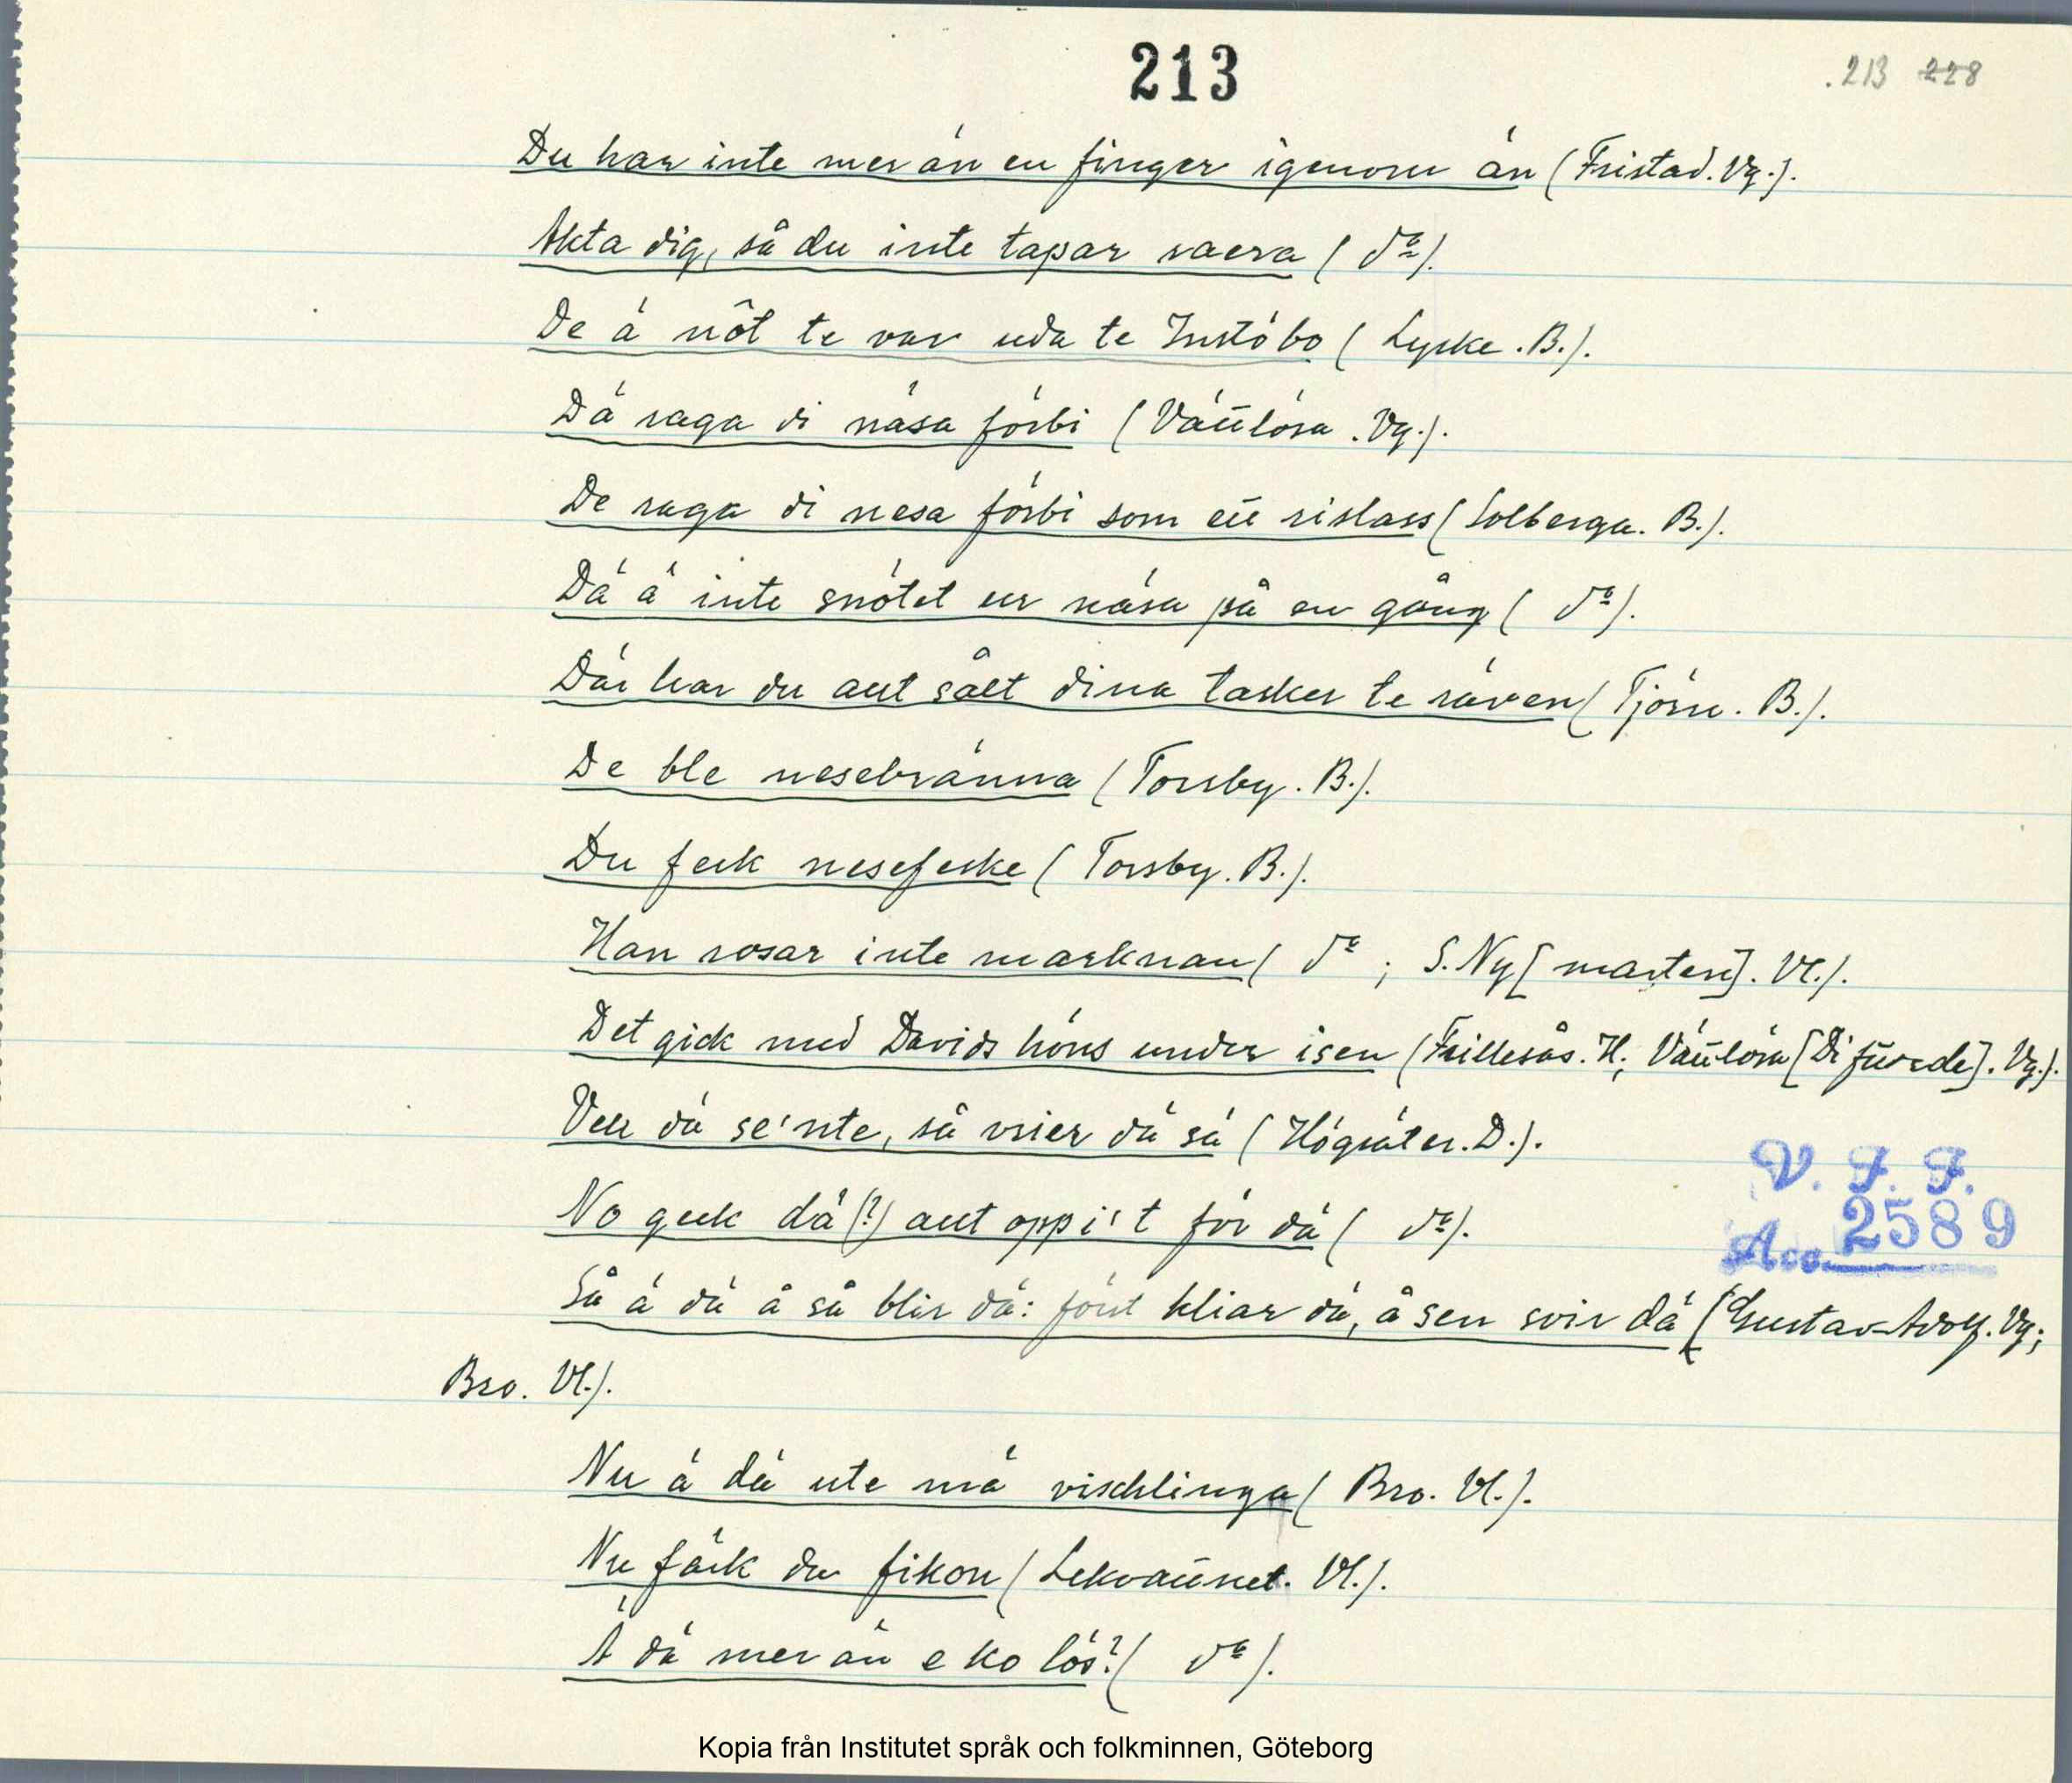 213
213 228
Du har inte mer än en finger igenom än (Fristad. Vg.).
Akta dig, så du inte tapar raera (dº).
De ä nöt te var uda te Instöbo (Lycke. B.).
Dä raga di näsa förbi (Vänlösa. Vg.).
De raga di nesa förbi som ett rislass (Solberga. B.).
Dä ä inte snötet ur näsa på en gång (dº).
Där har du aut sålt dina tasker te räven (Tjörn. B.).
De ble nesebränna (Torsby. B.).
Du feck nesefeske (Torsby. B.).
Han rosar inte marknan (dº; S. Ny [marten]. Vl.).
Det gick med Davids höns under isen (Frillesås. H; Vänlösa [Di furede]. Vg.).
Vell dä se'nte, så vrier dä sä (Högsäter. D.).
No geck dä (?) aut opp i't för dä (dº).
Så ä dä å så blir dä: först kliar dä, å sen svir dä (Gustav Adolf. Vg;
Bro. Vl.).
Nu ä dä ute mä vischlinga (Bro. Vl.).
Nu fäck du fikon (Lekvattnet. Vl.).
Ä dä mer än e ko lös? (dº).
V. F. F.
Acc. 2589
Kopia från Institutet språk och folkminnen, Göteborg